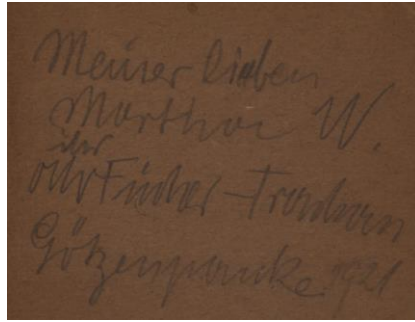 Meiner lieben
Martha W.
ihr
Otto Fischer-Trachau
Götzenpauke 1921